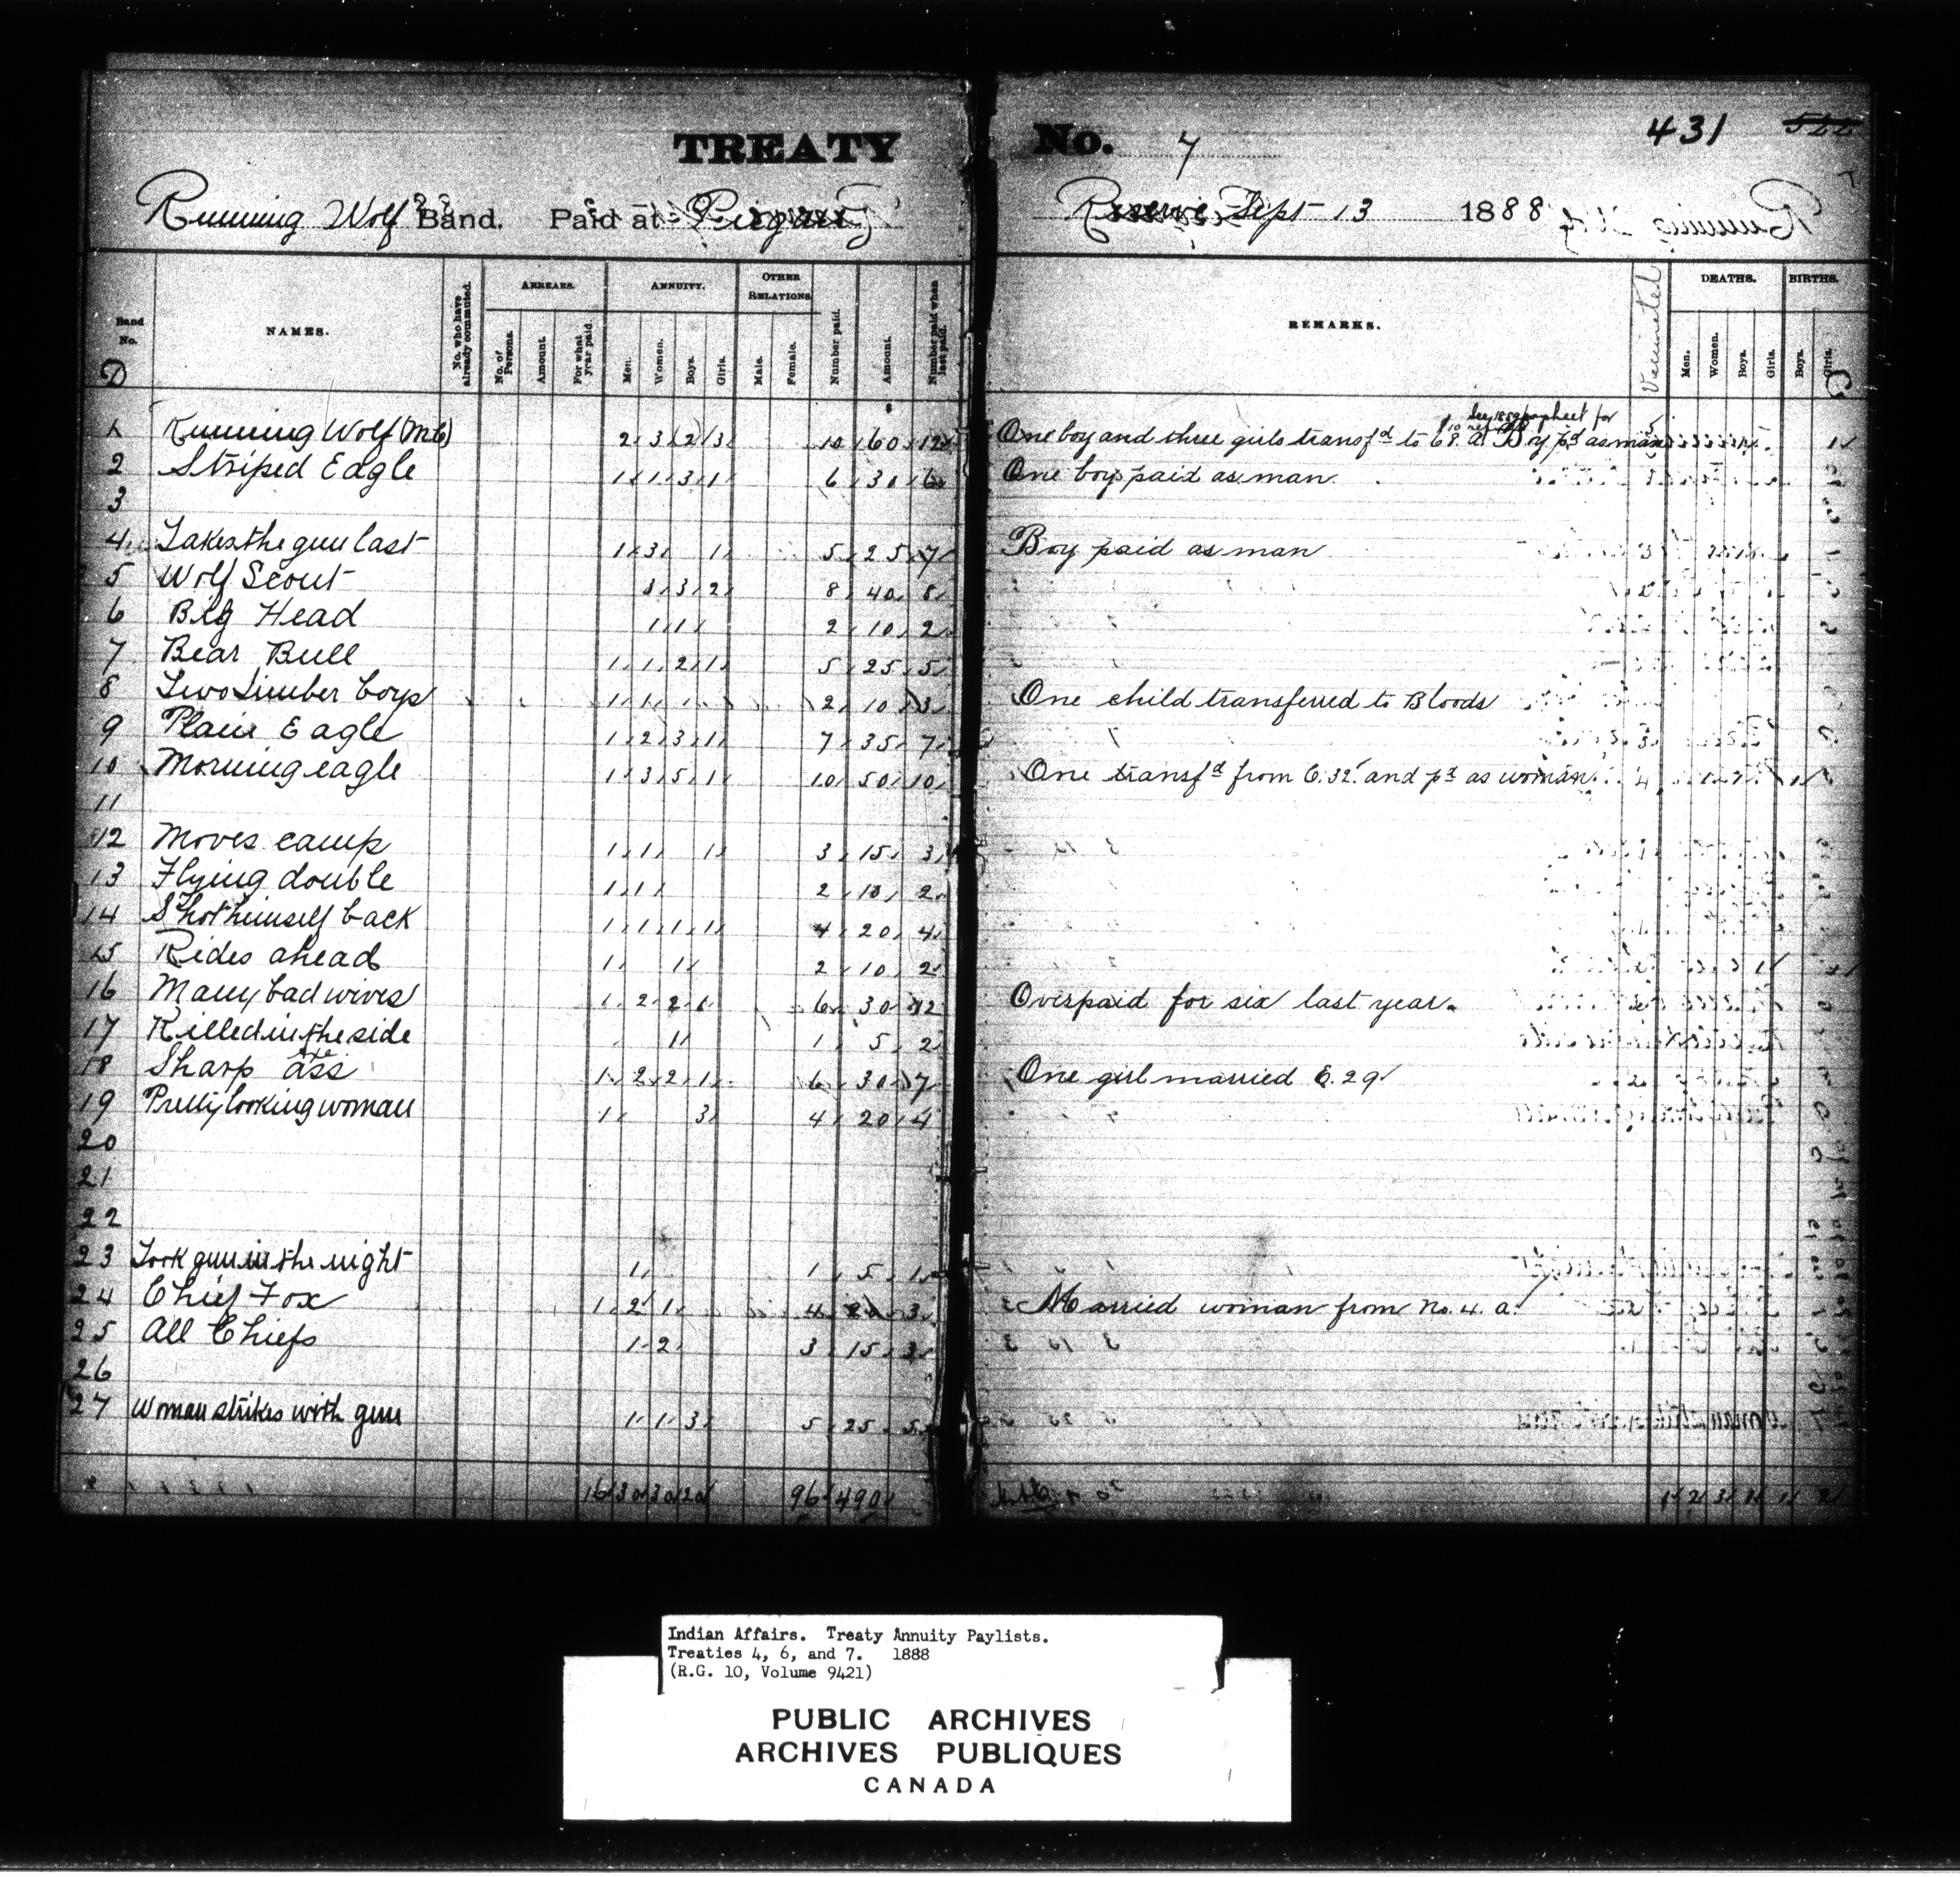 TREATY No. 7 431
Running Wolf's Band. Paid at Piegan Reserve Sept 13 1888
Band No. NAMES. No. who have already commuted. ARREARS. ANNUITY. OTHER RELATIONS Number paid. Amount. Number paid when last paid. REMARKS. DEATHS. BIRTHS.
No. of Persons. Amount. For what year paid. Men. Women. Boys. Girls. Male. Female. Men. Women. Boys. Girls. Boys. Girls.
D
1 Running Wolf (M.C) 2 3 2 3 10 60 12 One boy and three girls transfd to Boy pd as man
2 Striped Eagle 1 1 3 1 6 30 6 One boy paid as man
3
4 Takes the gun last 1 3 1 5 25 7 Boy paid as man
5 Wolf Scout 3 3 2 8 40 8
6 Big Head 1 1 2 10 2
7 Bear Bull 1 1 2 1 5 25 5
8 Two Timber boys 1 1 2 10 3 One child transferred to Bloods
9 Plain Eagle 1 2 3 1 7 35 7
10 Morning eagle 1 3 5 1 10 50 10 One transfd from C. 32. and pd as woman
11
12 Moves camp 1 1 1 3 15 3
13 Flying double 1 1 2 10 2
14 Shot himself back 1 1 1 1 4 20 4
15 Rides ahead 1 1 2 10 2
16 Many bad wives 1 2 2 1 6 30 12 Overpaid for six last year.
17 Killed in the side 1 1 5 2
18 Sharp 1 2 2 1 6 30 7 One girl married E. 29
19 Pretty looking woman 1 3 4 20 4
20
21
22
23 Took gun in the night 1 1 5 1
24 Chief Fox 1 2 1 4 20 3 Married woman from No. 4. a.
25 All Chiefs 1 2 3 15 3
26
27 Woman strikes with gun 1 1 3 5 25 5
16 30 30 20 96 490 1 2 3 1 1 2
Indian Affairs. Treaty Annuity Paylists.
Treaties 4, 6, and 7. 1888
(R.G. 10, Volume 9421)
PUBLIC ARCHIVES
ARCHIVES PUBLIQUES
CANADA